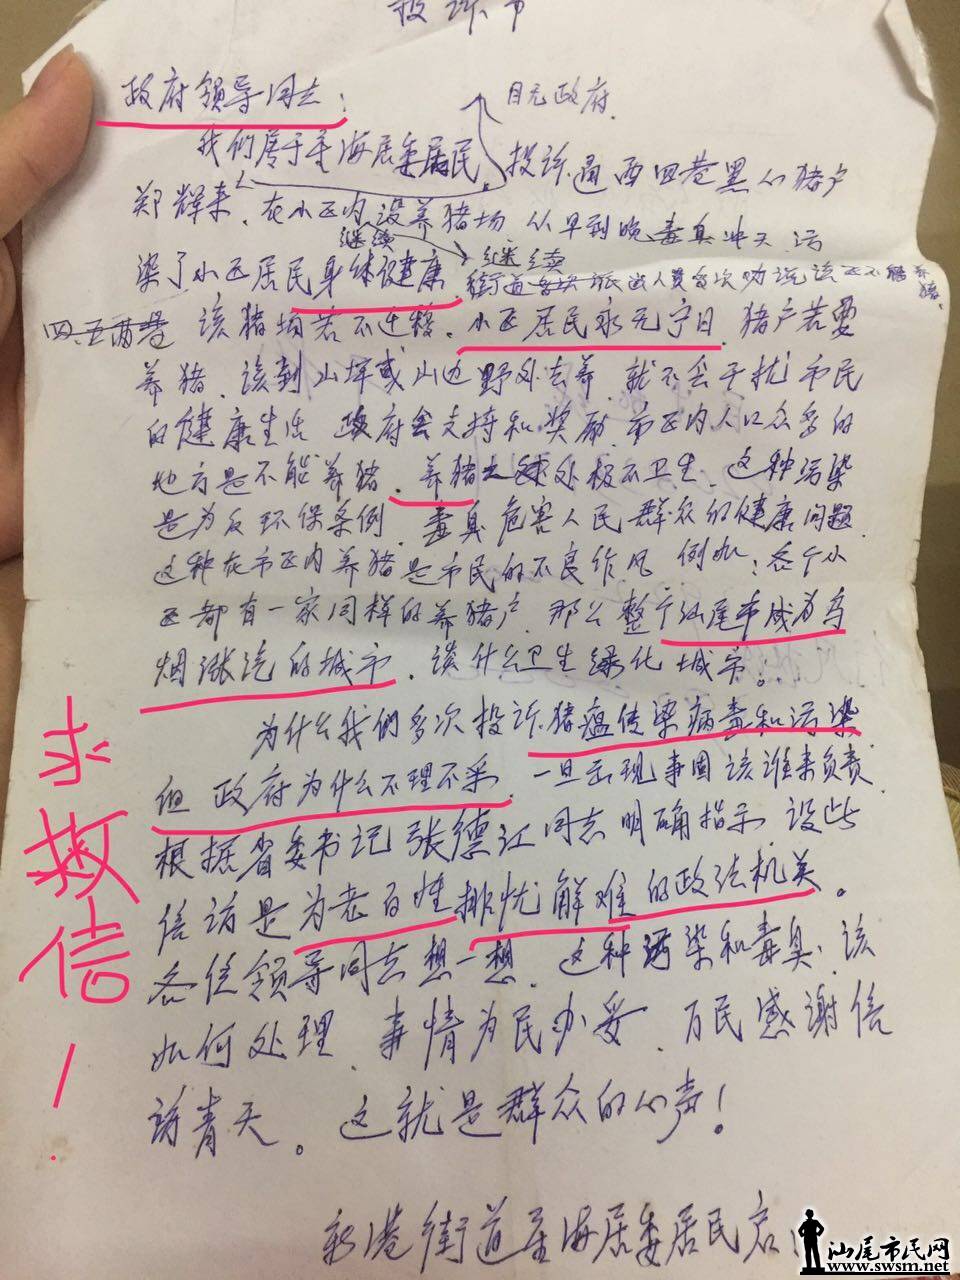 投诉书
政府领导同志:
目无政府.
我们居于 海居委居民,投诉通西四巷黑心猪户
郑辉来,在小区内设养猪场 从早到晚毒臭冲天,污
继续 继续
染了小区居民身体健康,街道 派出人员多次劝说该区不能养猪.
四.五两巷 该猪场若不迁移,小区居民永无宁日,猪户若要
养猪,该到山坪或山边野外去养,就不会干扰市民
的健康生活 政府会支持和奖励,市区内人口众多的
地方是不能养猪,养猪之 处极不卫生,这种污染
是为反环保条例,毒臭危害人民群众的健康问题
这种在市区内养猪是市民的不良作风 例如:各个小
区都有一家同样的养猪户,那么整个汕尾市成为乌
烟涨汽的城市,谈什么卫生绿化城市。
为什么我们多次投诉猪瘟传染病毒和污染
但政府为什么不理不采,一旦出现事因该谁来负责
根据省委书记张德江同志明确指示 设些
信访是为老百姓排忧解难的政法机关。
各位领导同志想一想,这种污染和毒臭,该
如何处理,事情为民办妥,万民感谢信
访青天。这就是群众的心声!
新港街道 海居委居民启
求救信!
汕尾市民网
www.swsm.net